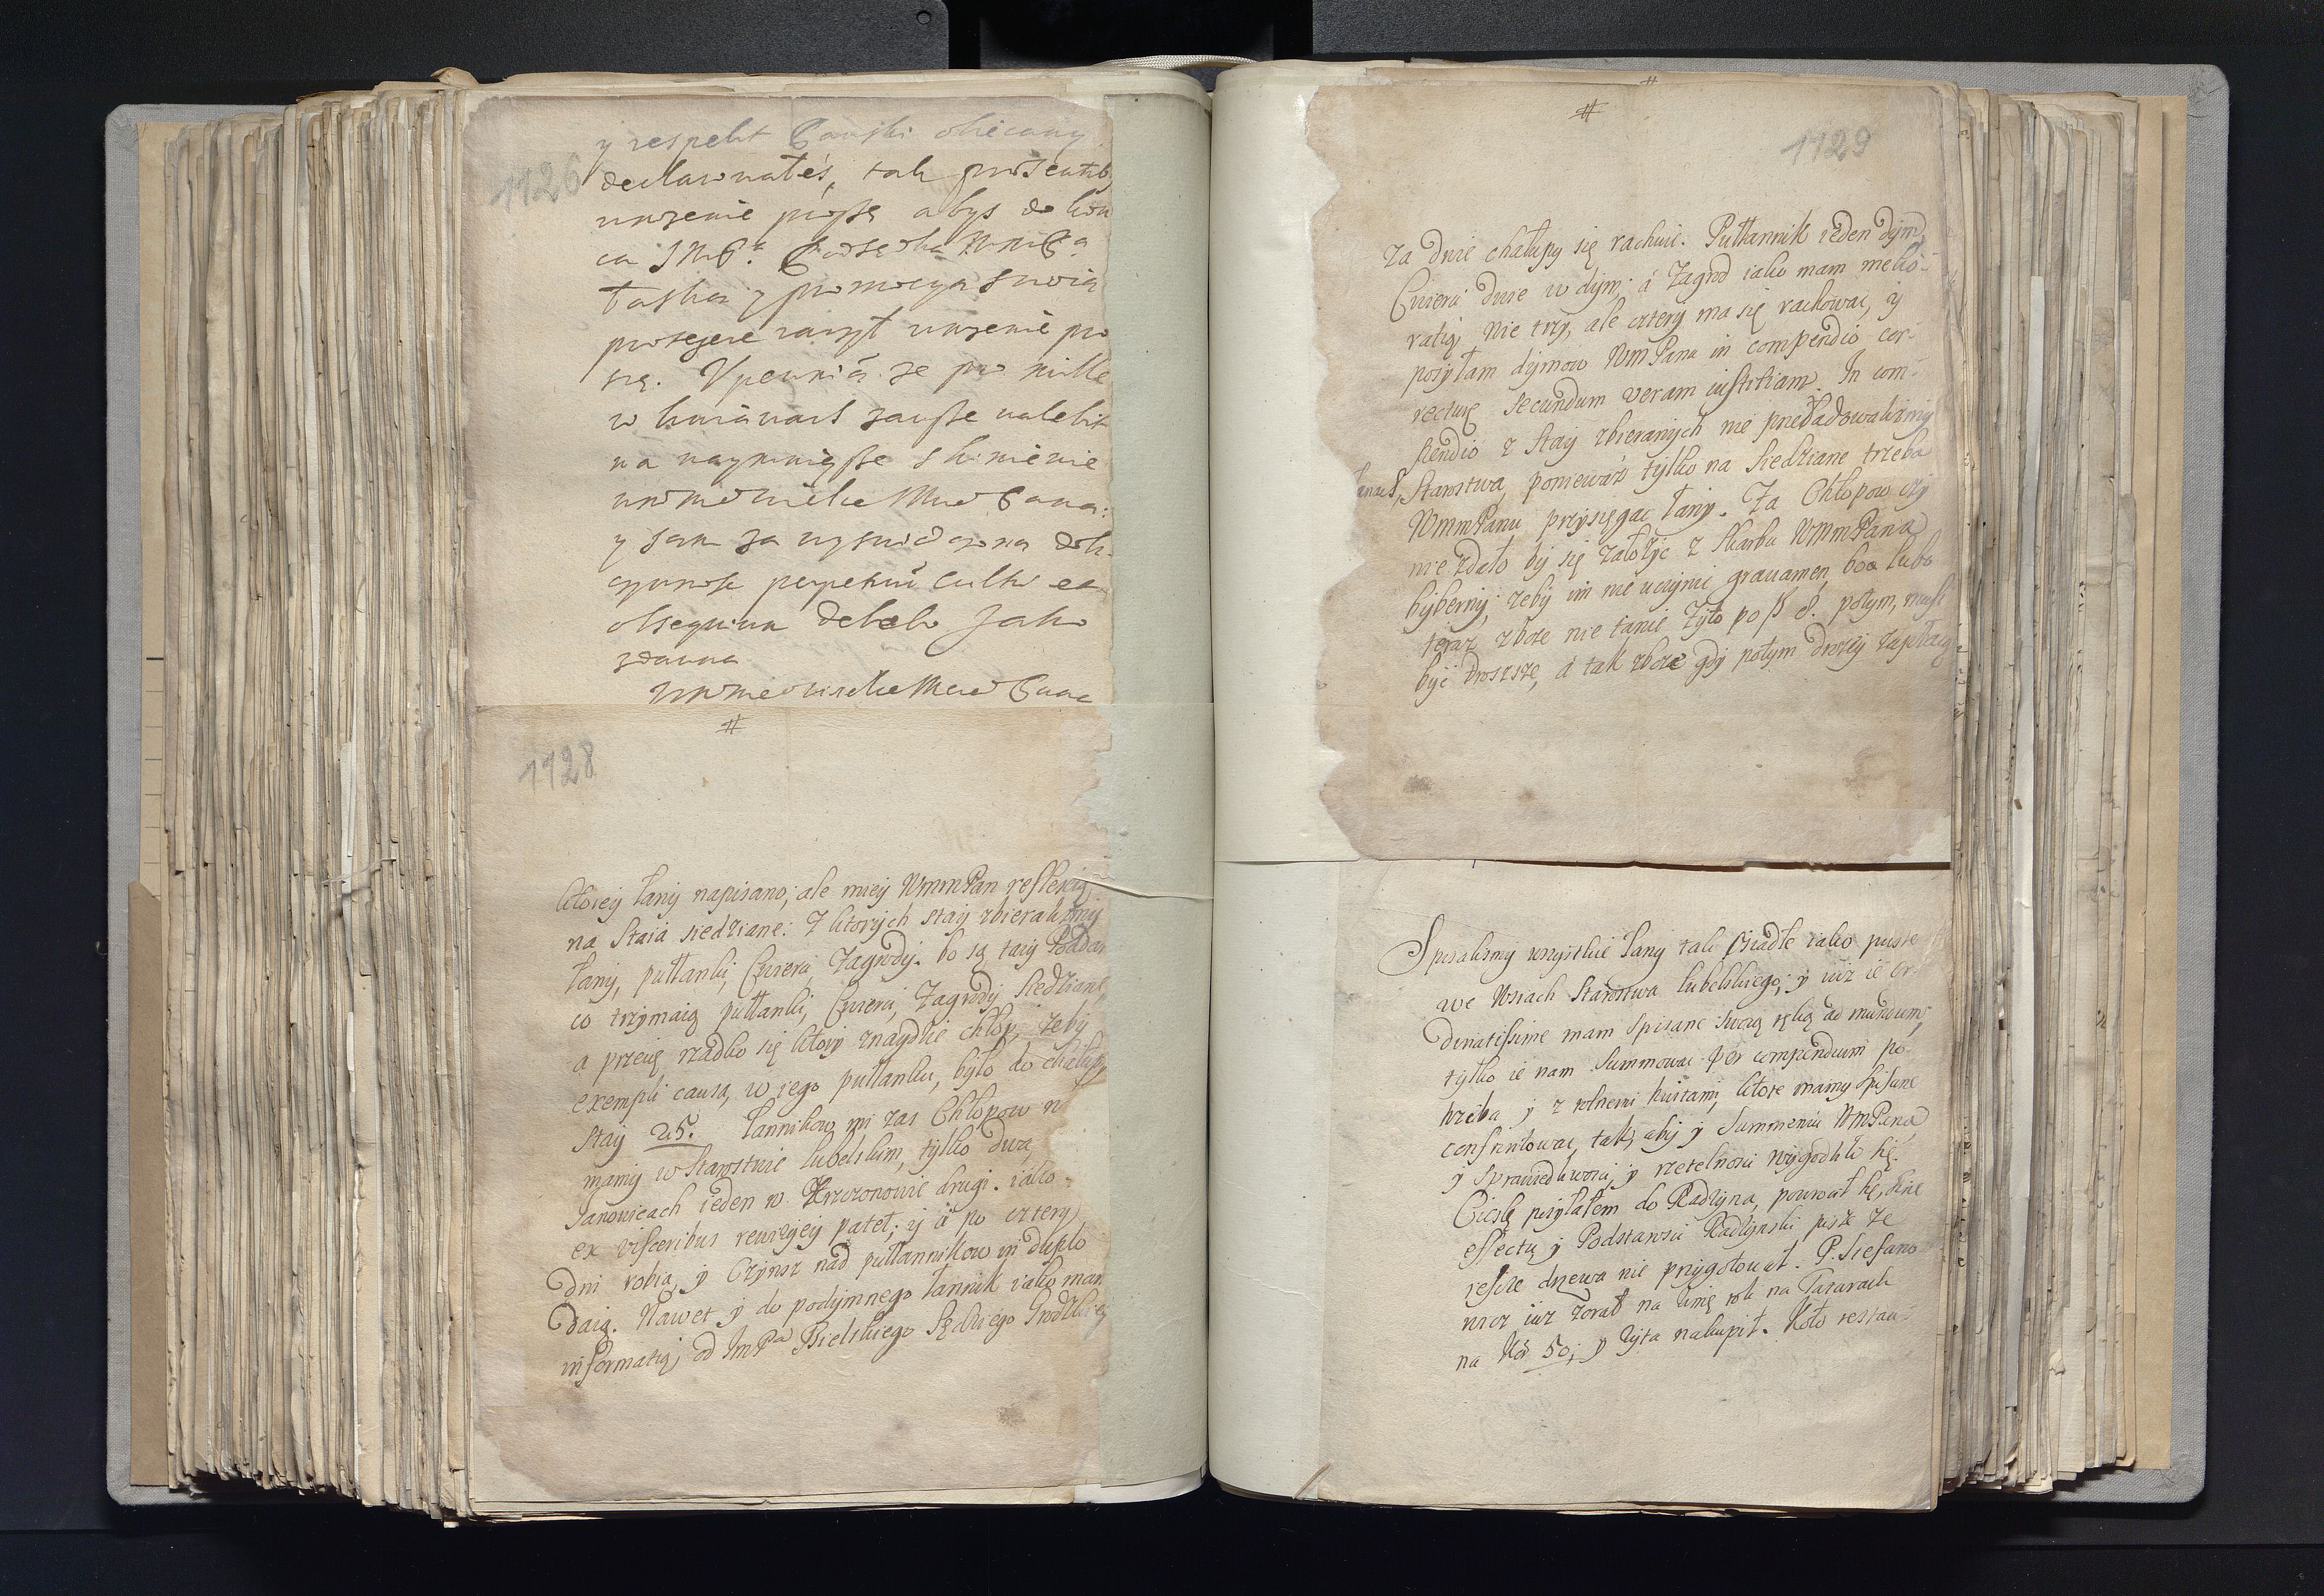 1126
y respekt Pański obiecany
declarowałeś, tak
unizenie proszę abys do kon
ca
łaską y promocyą swoią
protegere raczył unizenie pro
szę. Upewnia ze pro mille
zawsze
na naymnieysze skinienie
Pana:
y sam za wyswiadczoną dob
perpetuũ cultũ et
obsequium debebo Jako
zdawna
#
1128
ktorey łany napisano; ale miey WMMPan reflexią
na Staia siedziane: Z ktorych stay zbieralismy
łany, pułłanki, Cwierci, Zagrody. bo są tacy Poddan
co trzymaią pułłanki, Cwierci, Zagrody Siedziane,
a przecię rzadko się ktory znaydzie chłop, zeby
exempli causa, w iego pułłanku, było do chałupy
Stay 25. Łannikow mi zas Chłopow n
mamy w Starostwie Lubelskim, tylko dwa,
Janowicach ieden w Krzczonowie drugi. iako
ex visceribus rewizyey patet; y ci po cztery
Dni robią, y Czynsz nad pułłannikow in duplo
Daią. Nawet y do podymnego łannik iako mam
informatią; od ImPa Bielskiego Sędziego Grodzkieg
#
1129
za dwie chałupy się rachuie. Pułłannik ieden dym,
Cwierci dwie w dym; á Zagrod iako mam melio-
ratią nie trzy, ale cztery ma się rachować, y
posyłam dymow WMPana in compendio cor-
recturę secundum veram iustitiam. In com-
pendio z Stay zbieranych nie
Starostwa, poniewasz tylko na Siedziane trzeba
WMMPanu przysięgac łany. Za Chłopow czy
nie zdało by się załozyc z Skarbu WMMPana
hyberny; zeby im nie uczynić gravamen, bo lubo
teraz zboze nie tanie Zyto po f 8. potym, musi
być drozsze, á tak zboze gdy potym drozey zapłacą
Spisalismy wszystkie Łany tak Osiadłe iako puste
we Wsiach Starostwa Lubelskiego; y iuz ie or-
dinatissime mam spisane swoią ręką ad mundum,
tylko ie nam Summowac per compendium po-
trzeba y z rolnemi kwitami, ktore mamy spisane
confrontowac, tak, aby y Summeniu WMPana
y sprawiedliwosci, y rzetelnosci wygodziło się.
Cieslę posyłałem do Radzyna, powrocił się, sine
effectu y Podstarosci Radzynski pisze ze
iescze drzewa nie przygotował. P. Stefano
wicz iuz zorał na zimę roli na Tatarach
na Kor 50; y Zyta nakupił. Koło restau-